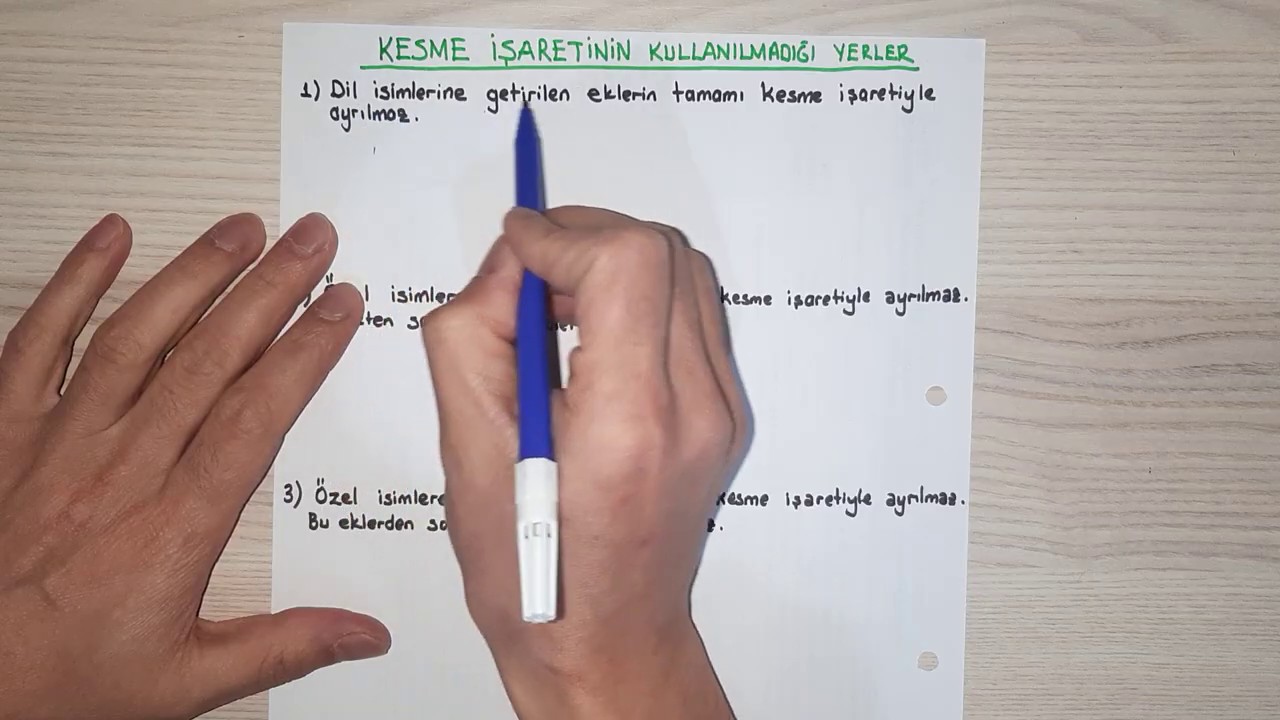 KESME İŞARETİNİN KULLANILMADIĞI YERLER
1) Dil isimlerine getirilen eklerin tamamı kesme işaretiyle
ayrılmaz.
isimler kesme işaretiyle ayrılmaz.
3) Özel isimlere kesme işaretiyle ayrılmaz.
Bu eklerden